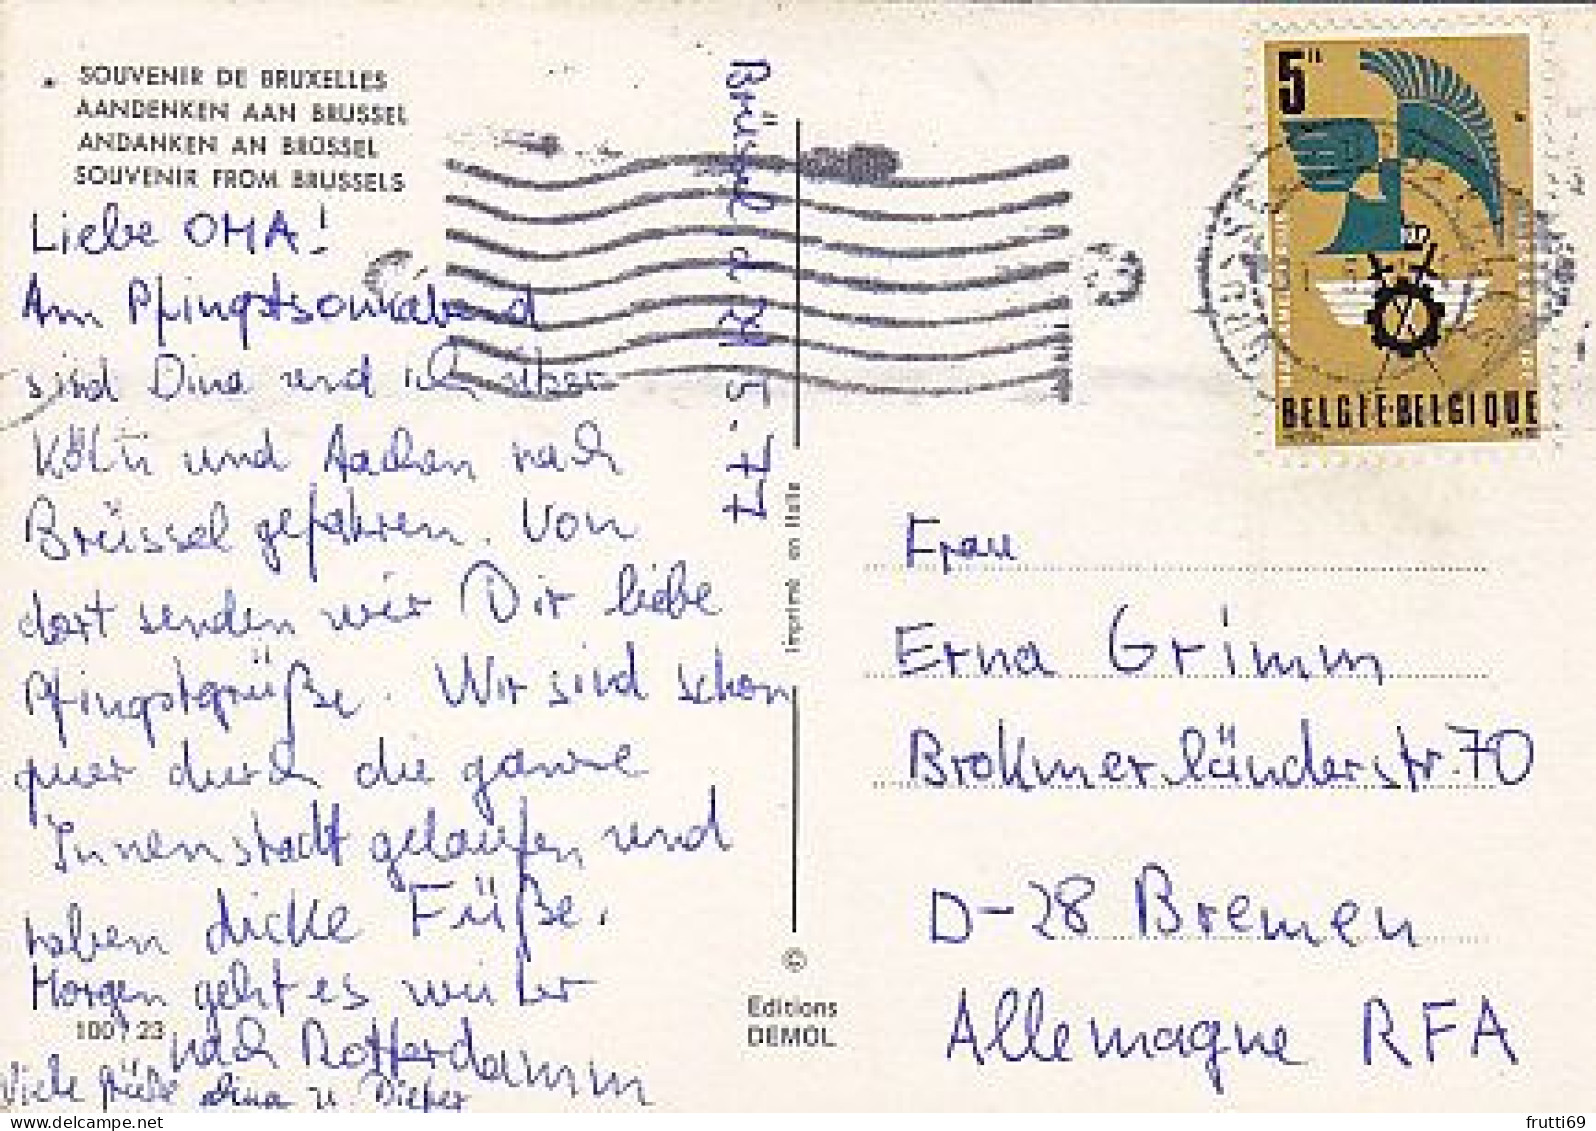 SOUVENIR DE BRUXELLES
AANDENKEN AAN BRUSSEL
ANDANKEN AN BROSSEL
SOUVENIR FROM BRUSSELS
Liebe OMA!
Am Pfingstsonnabend
sind Dina und ich über
Köln und Aachen nach
Brüssel gefahren. Von
dort senden wir Dir liebe
Pfingstgrüße. Wir sind schon
quer durch die ganze
Innenstadt gelaufen und
haben dicke Füße.
Morgen geht es weiter
nach Rotterdamm
Viele Grüße Dina u. Dieter
100 / 23
Brüssel d. 28.5.77
Imprimé en Italie
©
Editions
DEMOL
5F
BELGIE-BELGIQUE
Frau
Erna Grimm
Brokmerländerstr. 70
D-28 Bremen
Allemagne RFA
delcampe.net
frutti69